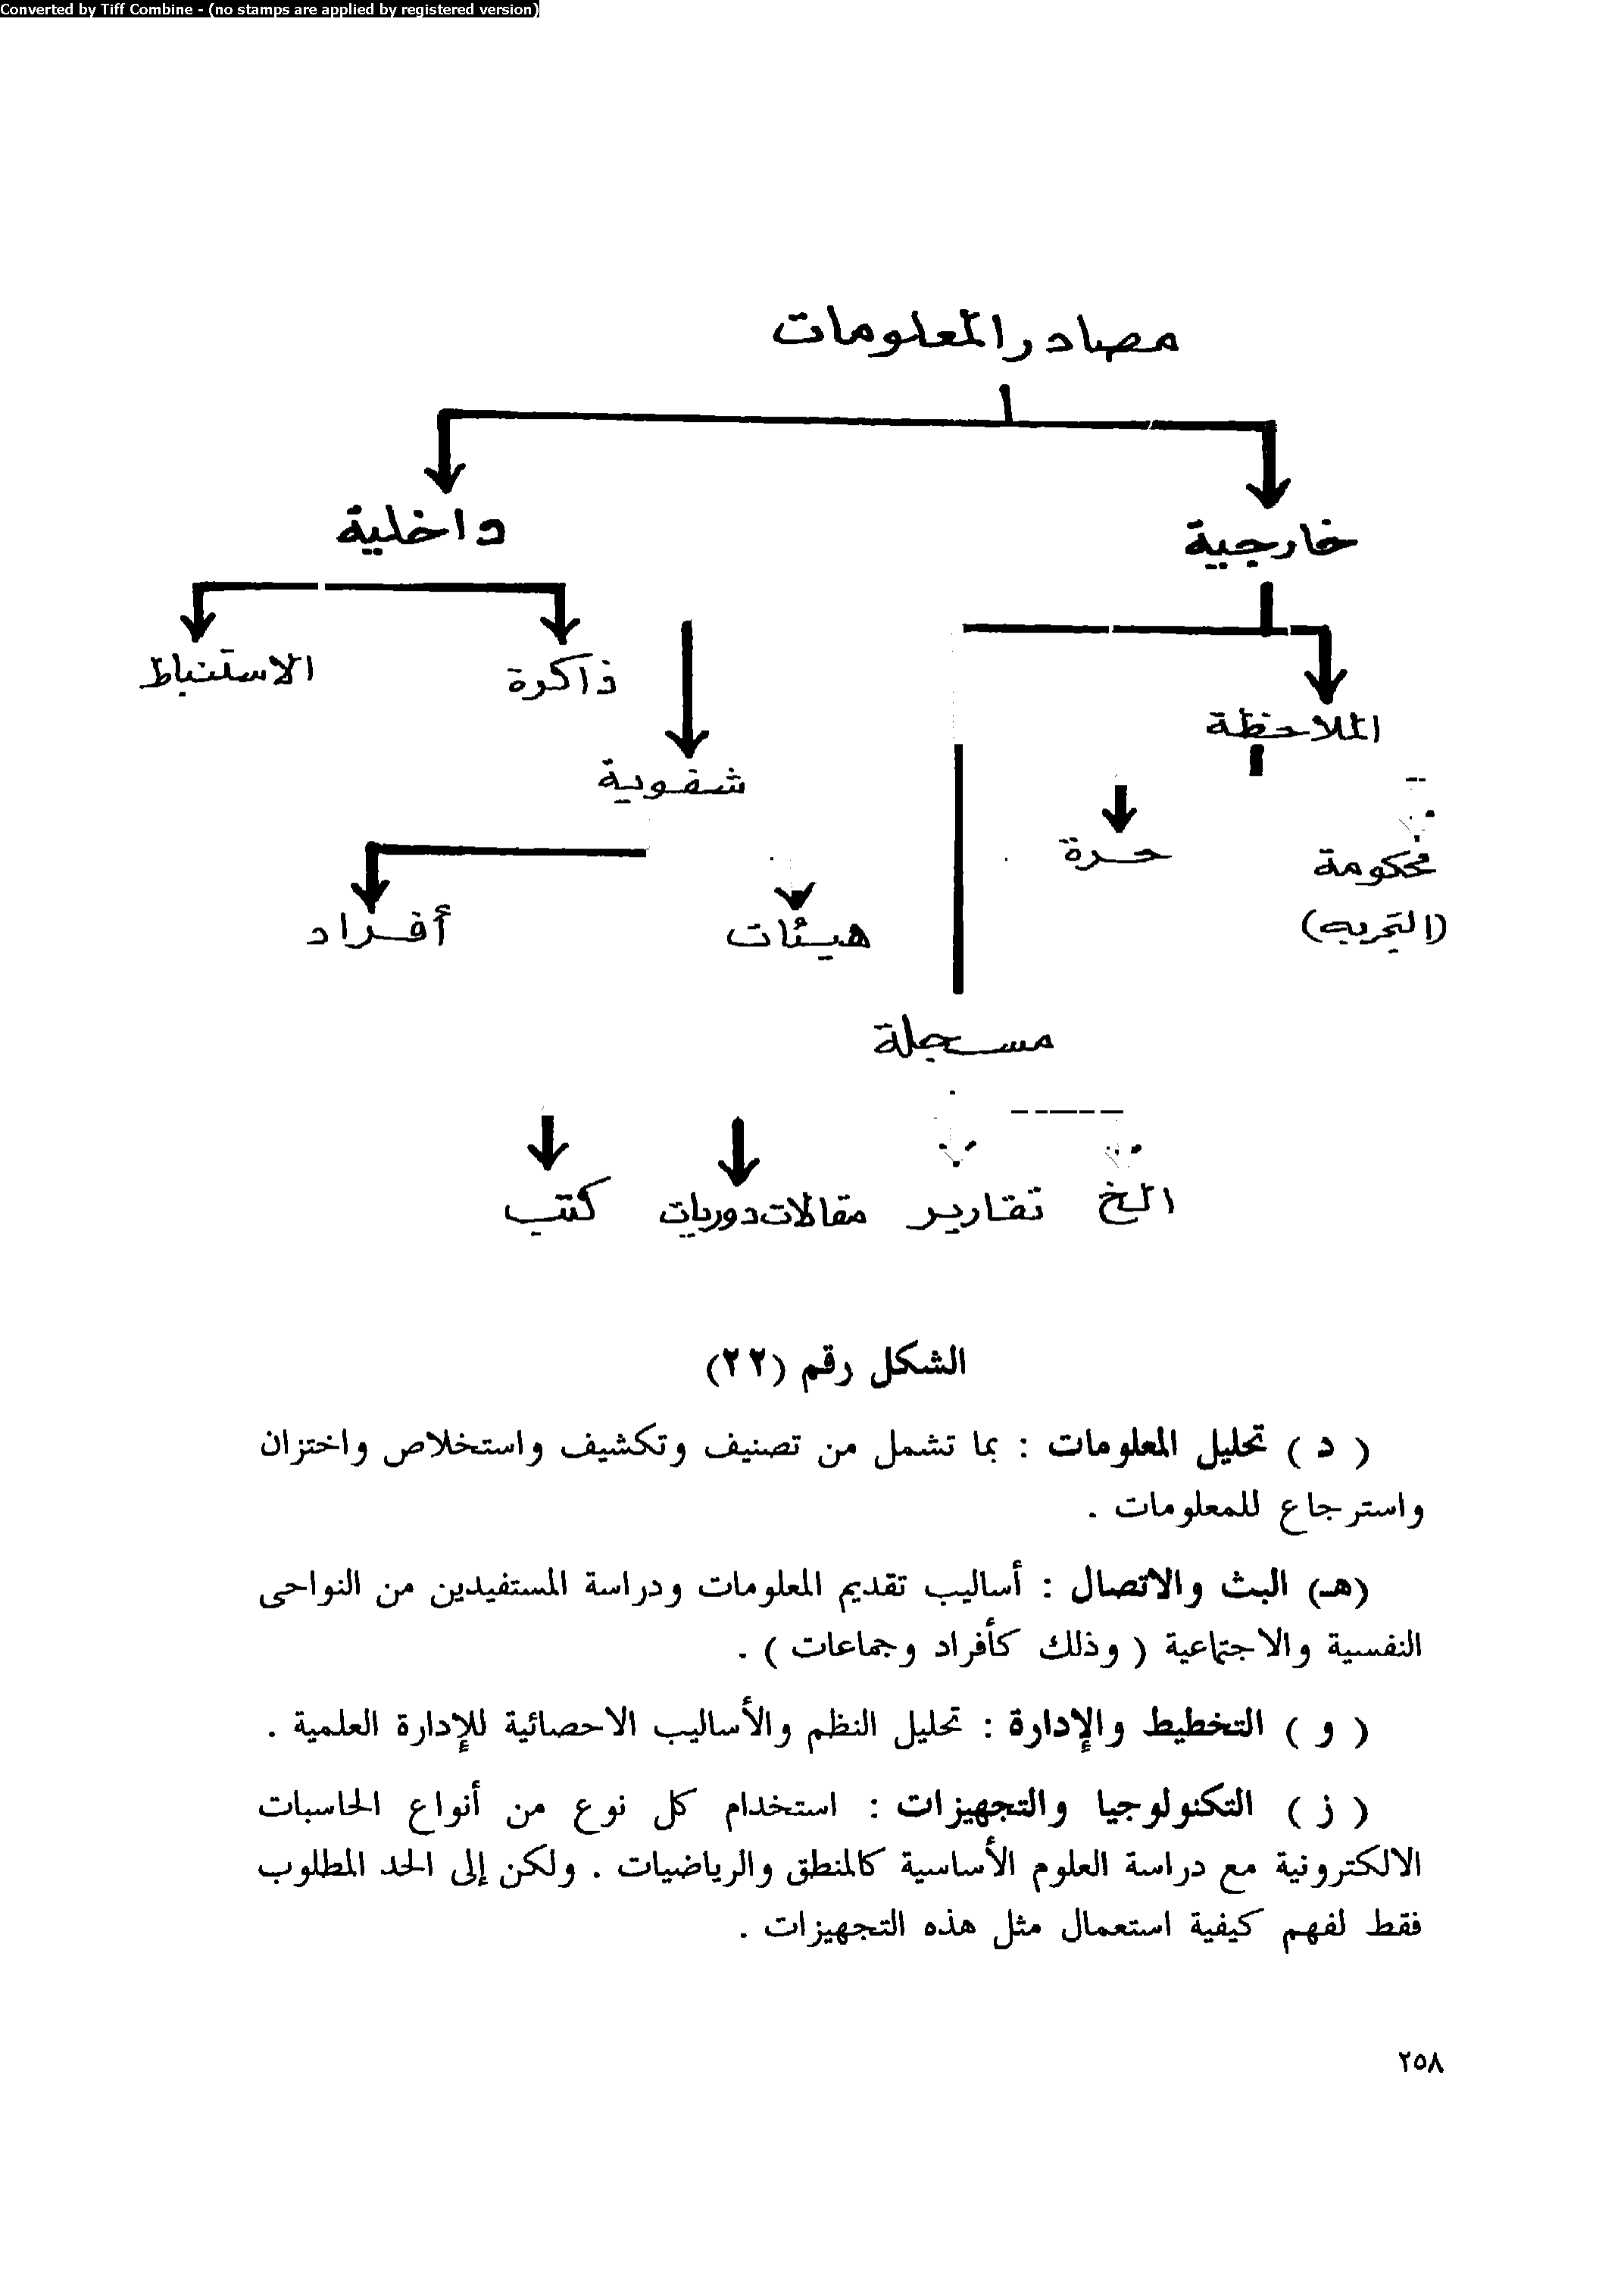 Converted by Tiff Combine - (no stamps are applied by registered version)
مصادر المعلومات
خارجية
داخلية
الملاحظة
ذاكرة
الاستنباط
شفوية
محكومة
(التجريب)
حرة
هيئات
أفراد
مسجلة
الخ
تقارير
مقالات دوريات
كتب
الشكل رقم (٢٢)
( د ) تحليل المعلومات : بما تشمل من تصنيف وتكشيف واستخلاص واختزان
واسترجاع للمعلومات .
(هـ) البث والاتصال : أساليب تقديم المعلومات ودراسة المستفيدين من النواحى
النفسية والاجتماعية ( وذلك كأفراد وجماعات ) .
( و ) التخطيط والإدارة : تحليل النظم والأساليب الاحصائية للإدارة العلمية .
( ز ) التكنولوجيا والتجهيزات : استخدام كل نوع من أنواع الحاسبات
الالكترونية مع دراسة العلوم الأساسية كالمنطق والرياضيات . ولكن إلى الحد المطلوب
فقط لفهم كيفية استعمال مثل هذه التجهيزات .
٢٥٨